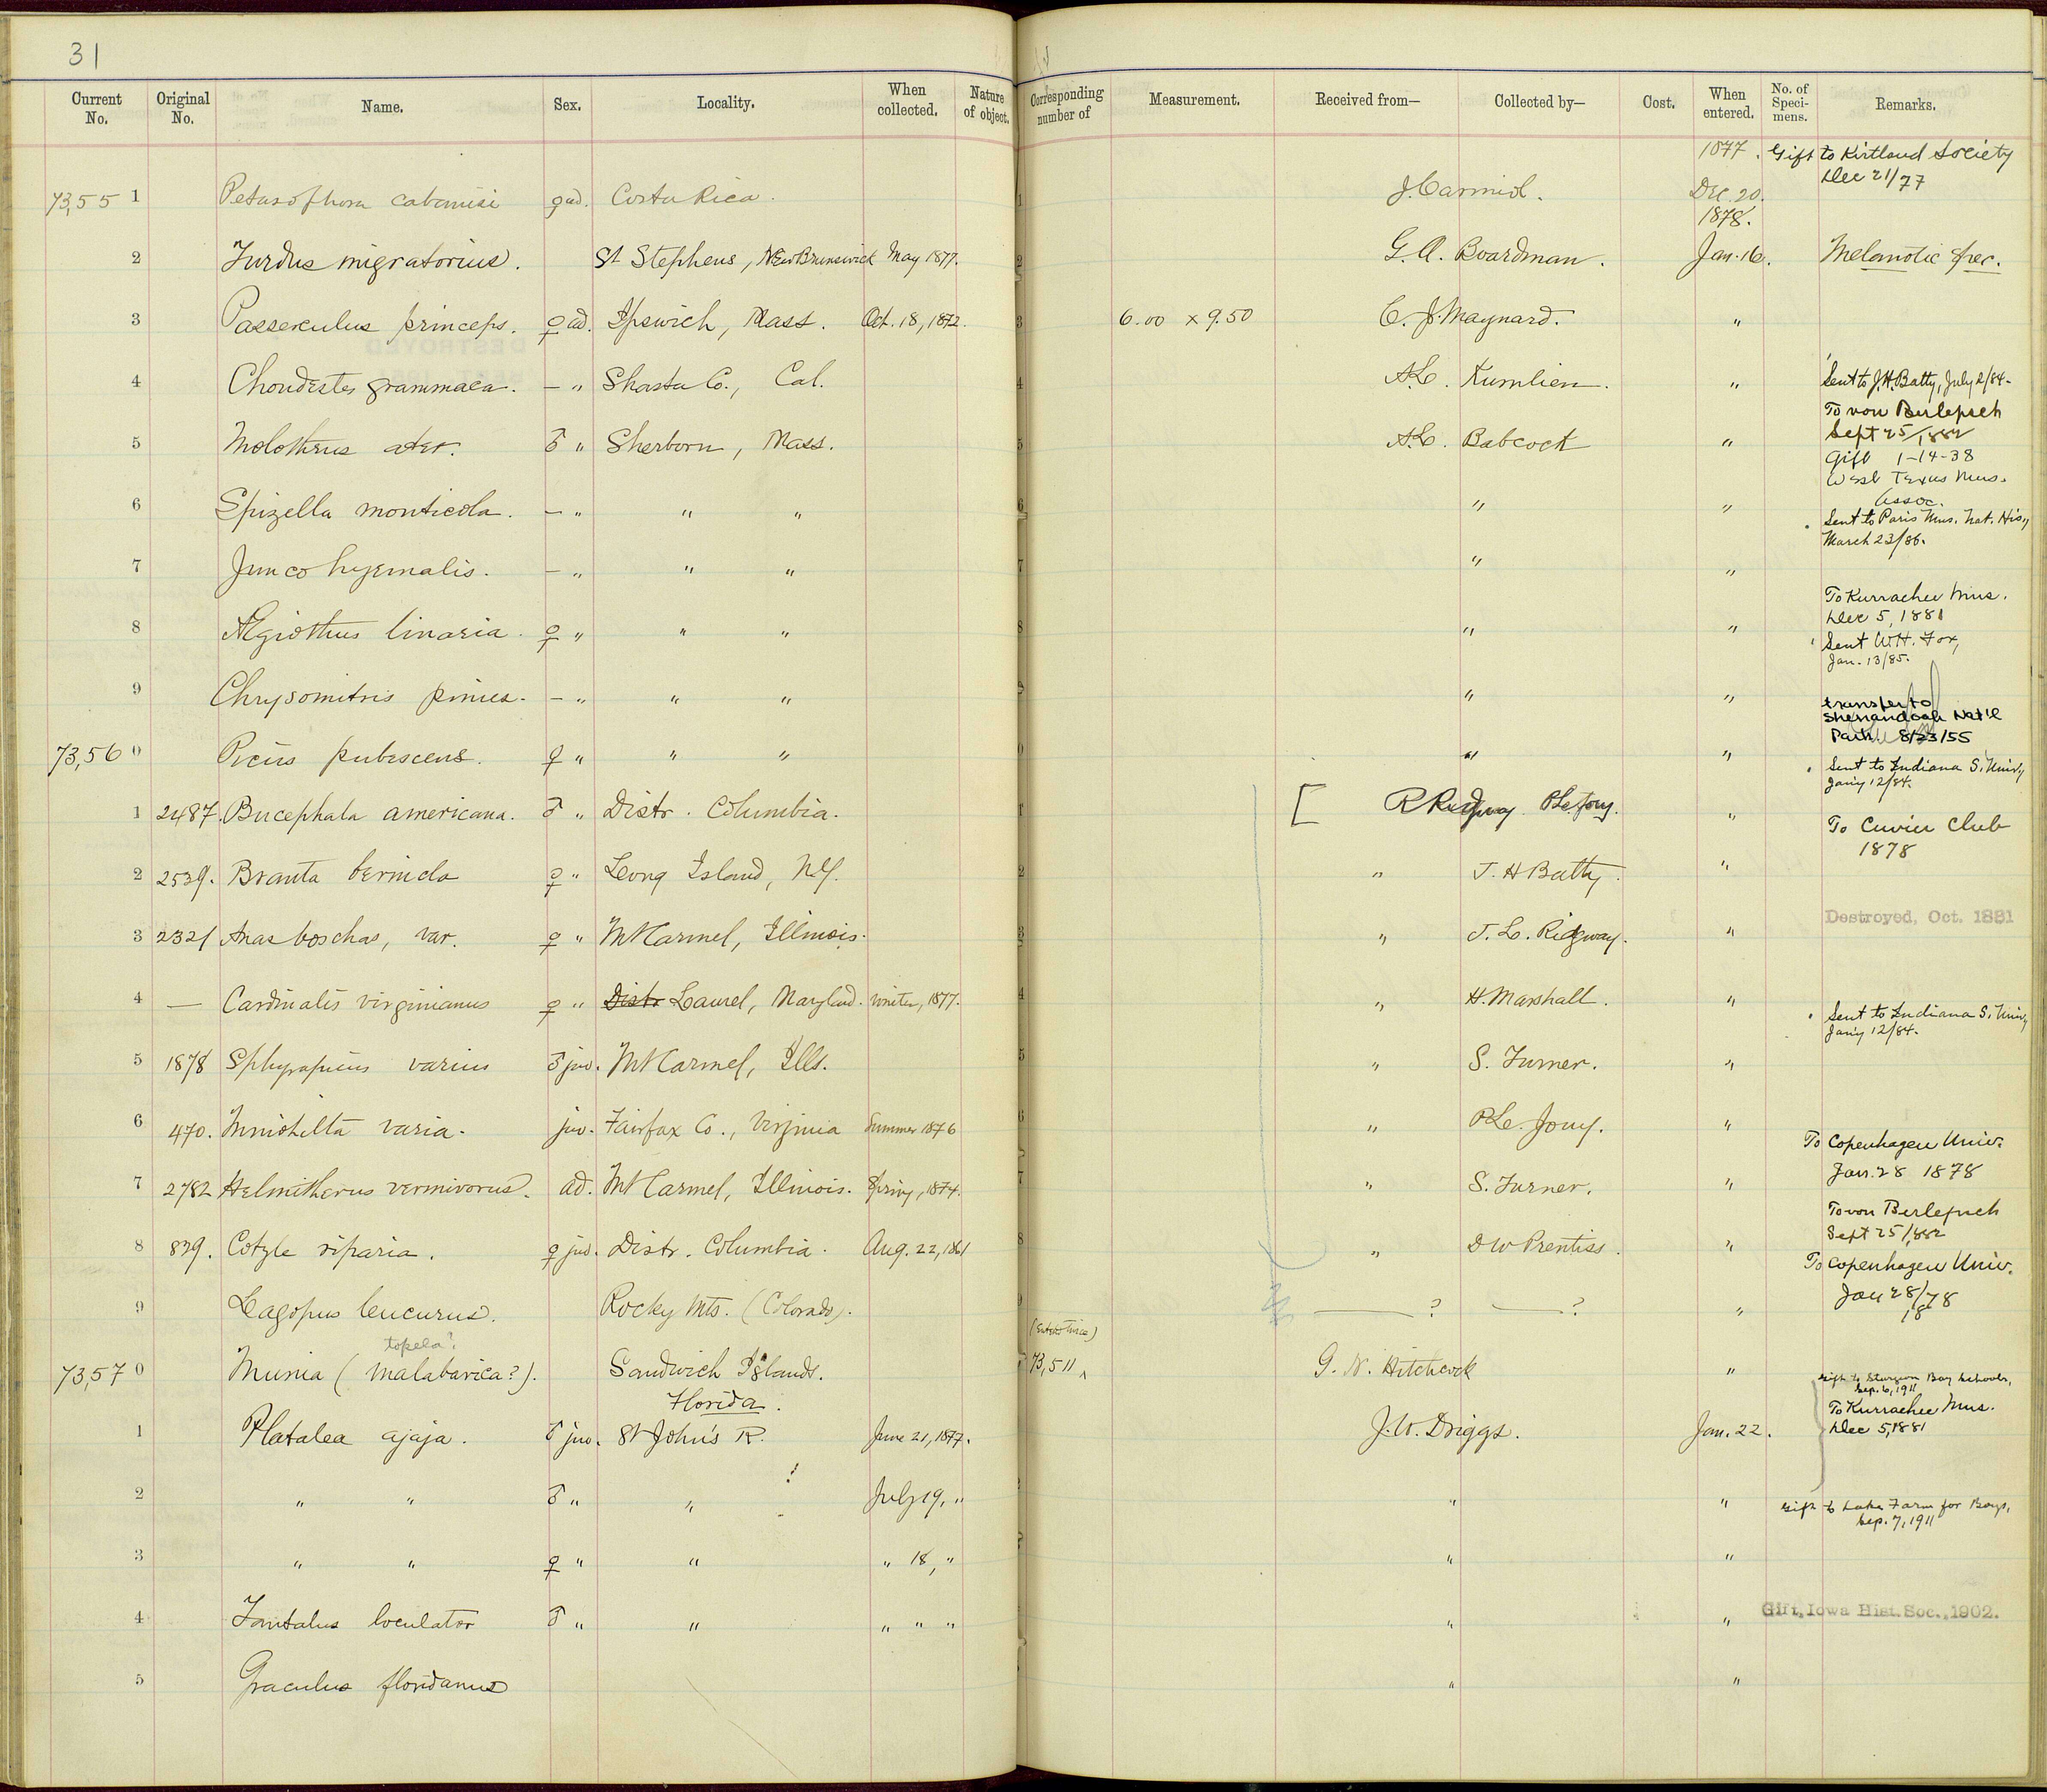 31
Current No. Original No. Name. Sex. Locality. When collected. Nature of object. Corresponding number of Measurement. Received from— Collected by— Cost. When entered. No. of Speci- mens. Remarks.
1877. Gift to Kirtland Society
Dec 21/77
73,55 1 Petasophora cabanisi ad. Costa Rica. 1 J. Carmiol. Dec. 20.
1878.
2 Turdus migratorius. St Stephens, New Brunswick May 1877. 2 G. A. Boardman. Jan. 16. Melanotic spec.
3 Passerculus princeps. ♀ ad. Ipswich, Mass. Oct. 18, 1872. 3 6.00 x 9.50 C. J. Maynard. "
4 Chondestes grammaca. — " Shasta Co., Cal. 4 Kumlien. " Sent to J.H. Batty, July 2/84.
To von Berlepsch
Sept 25/1882
5 Molothrus ater. ♂ " Sherborn, Mass. 5 A.L. Babcock "
Gift 1-14-38
West Texas Mus.
Assoc.
6 Spizella monticola. — " " " 6 " "
Sent to Paris Mus. Nat. His.,
March 23/86.
7 Junco hyemalis. — " " " 7 " "
To Kurrachee Mus.
Dec 5, 1881
8 Ægiothus linaria. ♀ " " " 8 " "
Sent W.H. Fox,
Jan. 13/85.
9 Chrysomitris pinus. — " " " 9 " "
transfer to
Shenandoah Nat'l
Park. 8/23/55
73,56 0 Picus pubescens. ♀ " " " 0 " "
Sent to Indiana S. Univ,
Jan'y 12/84.
1 2487. Bucephala americana. ♂ " Distr. Columbia. 1 [ R Ridgway P.L. Jouy. "
To Cuvier Club
1878
2 2539. Branta bernicla ♀ " Long Island, N.Y. 2 " J. H Batty. "
Destroyed, Oct. 1881
3 2321 Anas boschas, var. ♀ " Mt Carmel, Illinois. 3 " J. L. Ridgway. "
4 — Cardinalis virginianus ♀ " Distr Laurel, Maryland. Winter, 1877. 4 " H. Marshall. "
Sent to Indiana S. Univ,
Jan'y 12/84.
5 1878 Sphyrapicus varius ♂ juv. Mt Carmel, Ills. 5 " S. Turner. "
6 470. Mniotilta varia. juv. Fairfax Co., Virginia Summer 1876 6 " P.L. Jouy. "
To Copenhagen Univ.
Jan. 28 1878
7 2782 Helmitherus vermivorus. ad. Mt Carmel, Illinois. Spring, 1874. 7 " S. Turner. "
To von Berlepsch
Sept 25/1882
8 839. Cotyle riparia. ♀ juv. Distr. Columbia. Aug. 22, 1861 8 " D W Prentiss. "
To Copenhagen Univ.
Jan 28/78
18
9 Lagopus leucurus. Rocky Mts. (Colorado). 9 —? —? "
topela?
(Entered twice)
73,57 0 Munia (malabarica?). Sandwich Islands. 73,511 G. N. Hitchcock "
Gift to Sturgeon Bay Schools,
Sep. 6, 1911
To Kurrachee Mus.
Dec 5, 1881
Florida.
1 Platalea ajaja. ♂ juv. St John's R. June 21, 1877. J. W. Driggs. Jan. 22.
2 " " ♂ " " ! July 19, " " "
Gift to Lake Farm for Boys,
Sep. 7, 1911
3 " " ♀ " " " 18, " " "
4 Tantalus loculator ♂ " " " " " " "
Gift, Iowa Hist. Soc., 1902.
5 Graculus floridanus " "